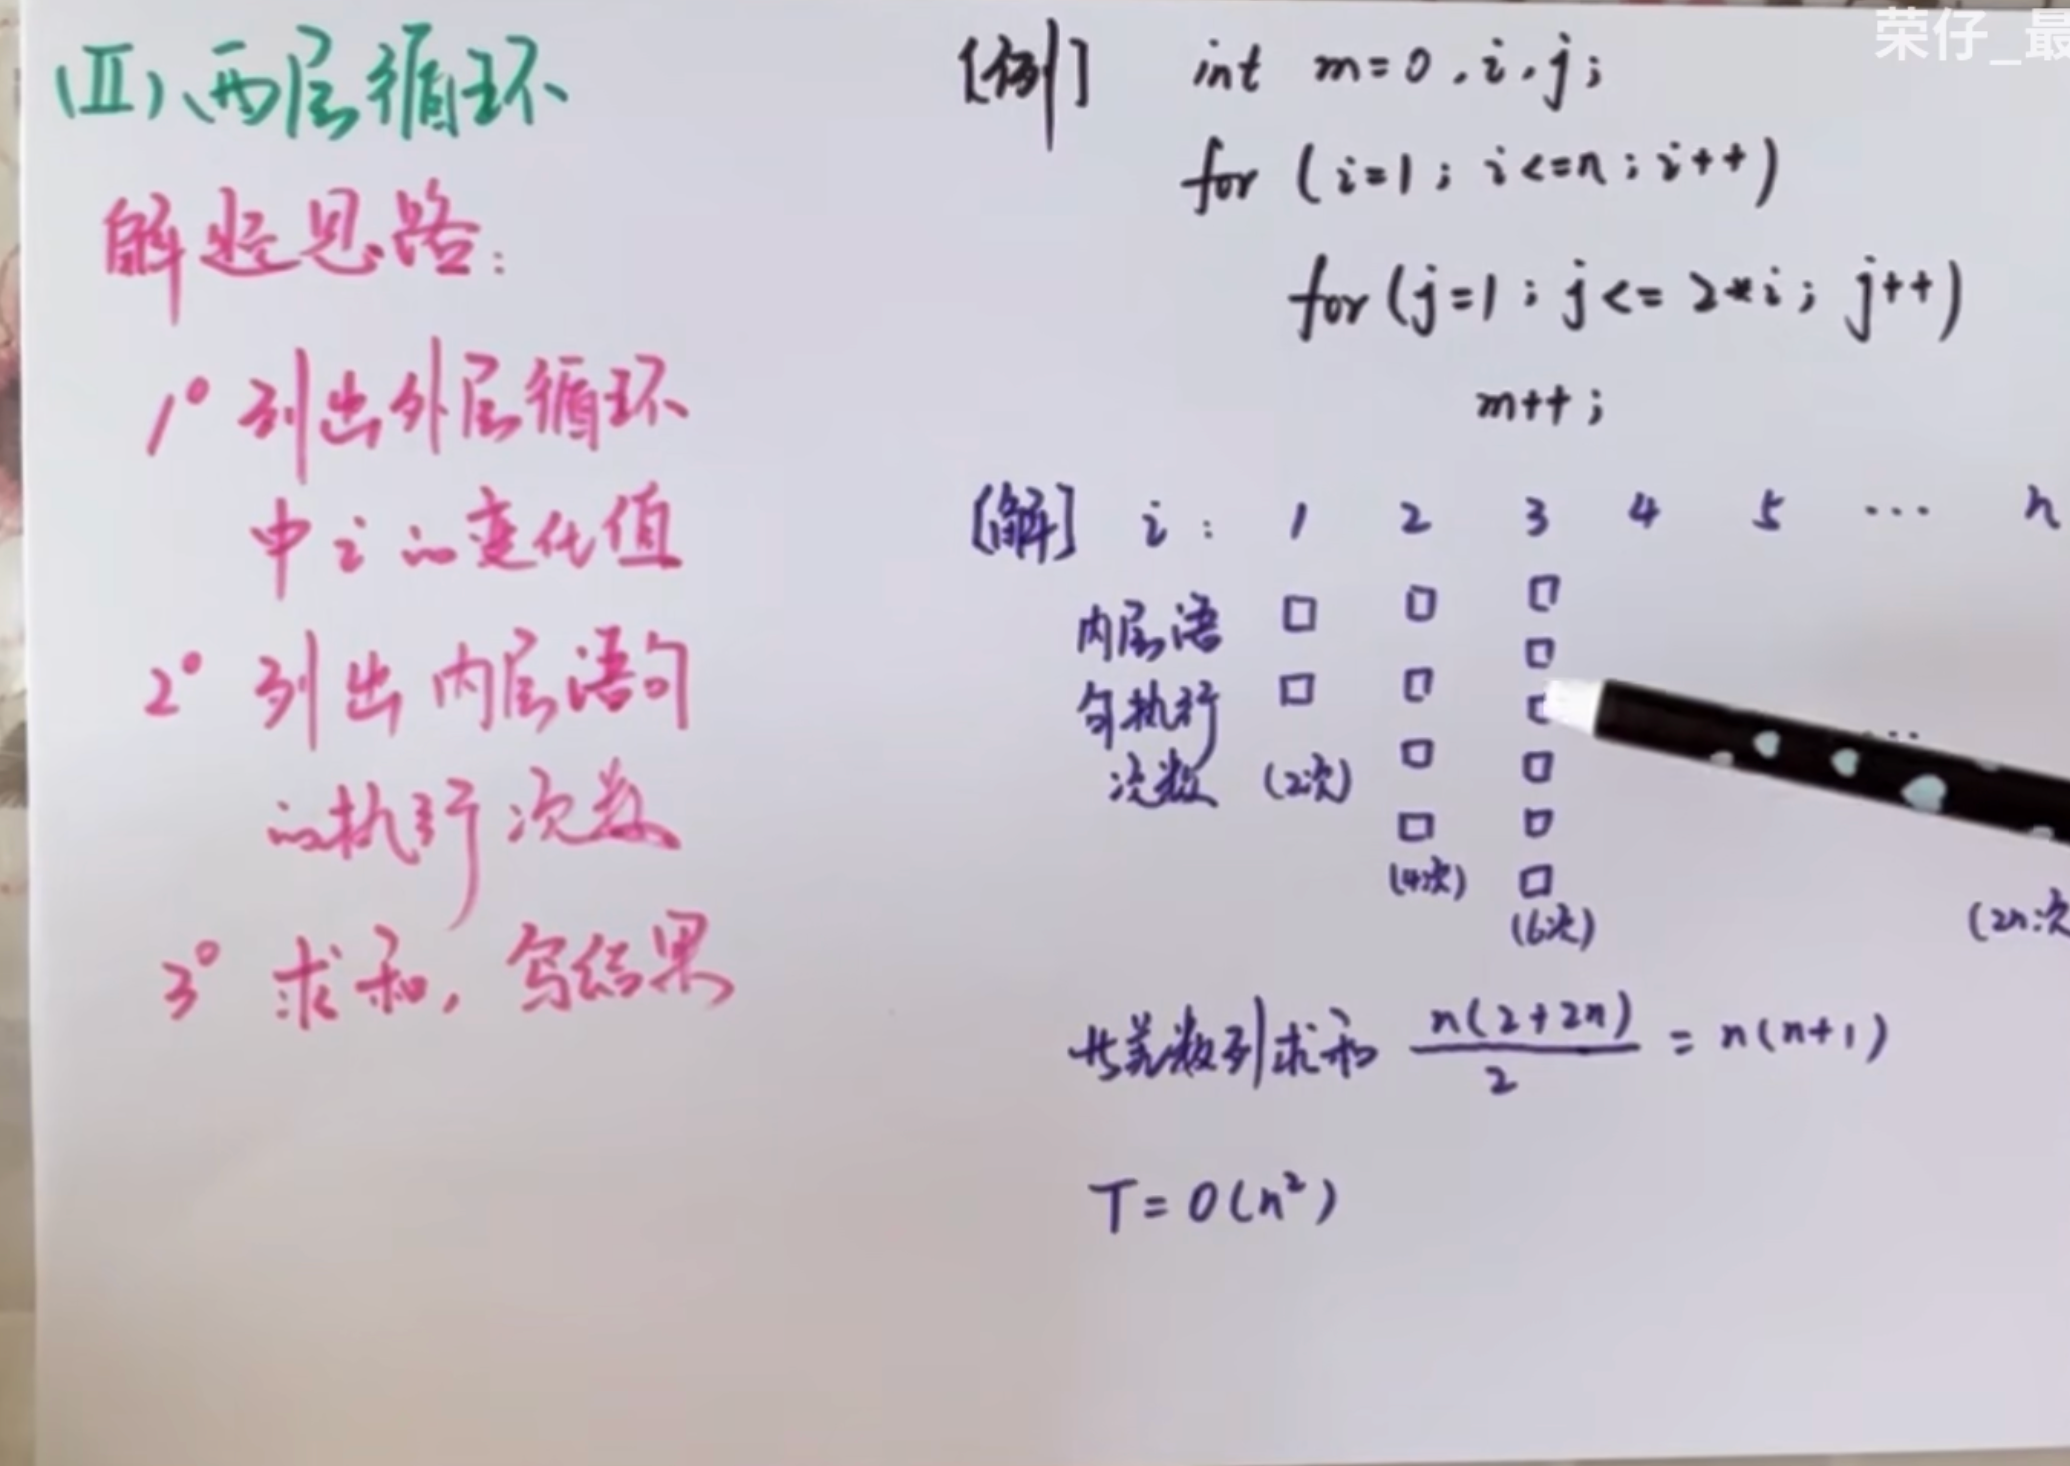 荣仔_最
(Ⅱ)、两层循环
解题思路:
1° 列出外层循环
中i的变化值
2° 列出内层语句
的执行次数
3° 求和,写结果
[例] int m=0,i,j;
for (i=1; i<=n; i++)
for (j=1; j<=2*i; j++)
m++;
[解] i: 1 2 3 4 5 … n
内层语
句执行 …
次数 (2次)
(4次)
(6次) (2n次
等差数列求和 n(2+2n)/2 = n(n+1)
T=O(n²)